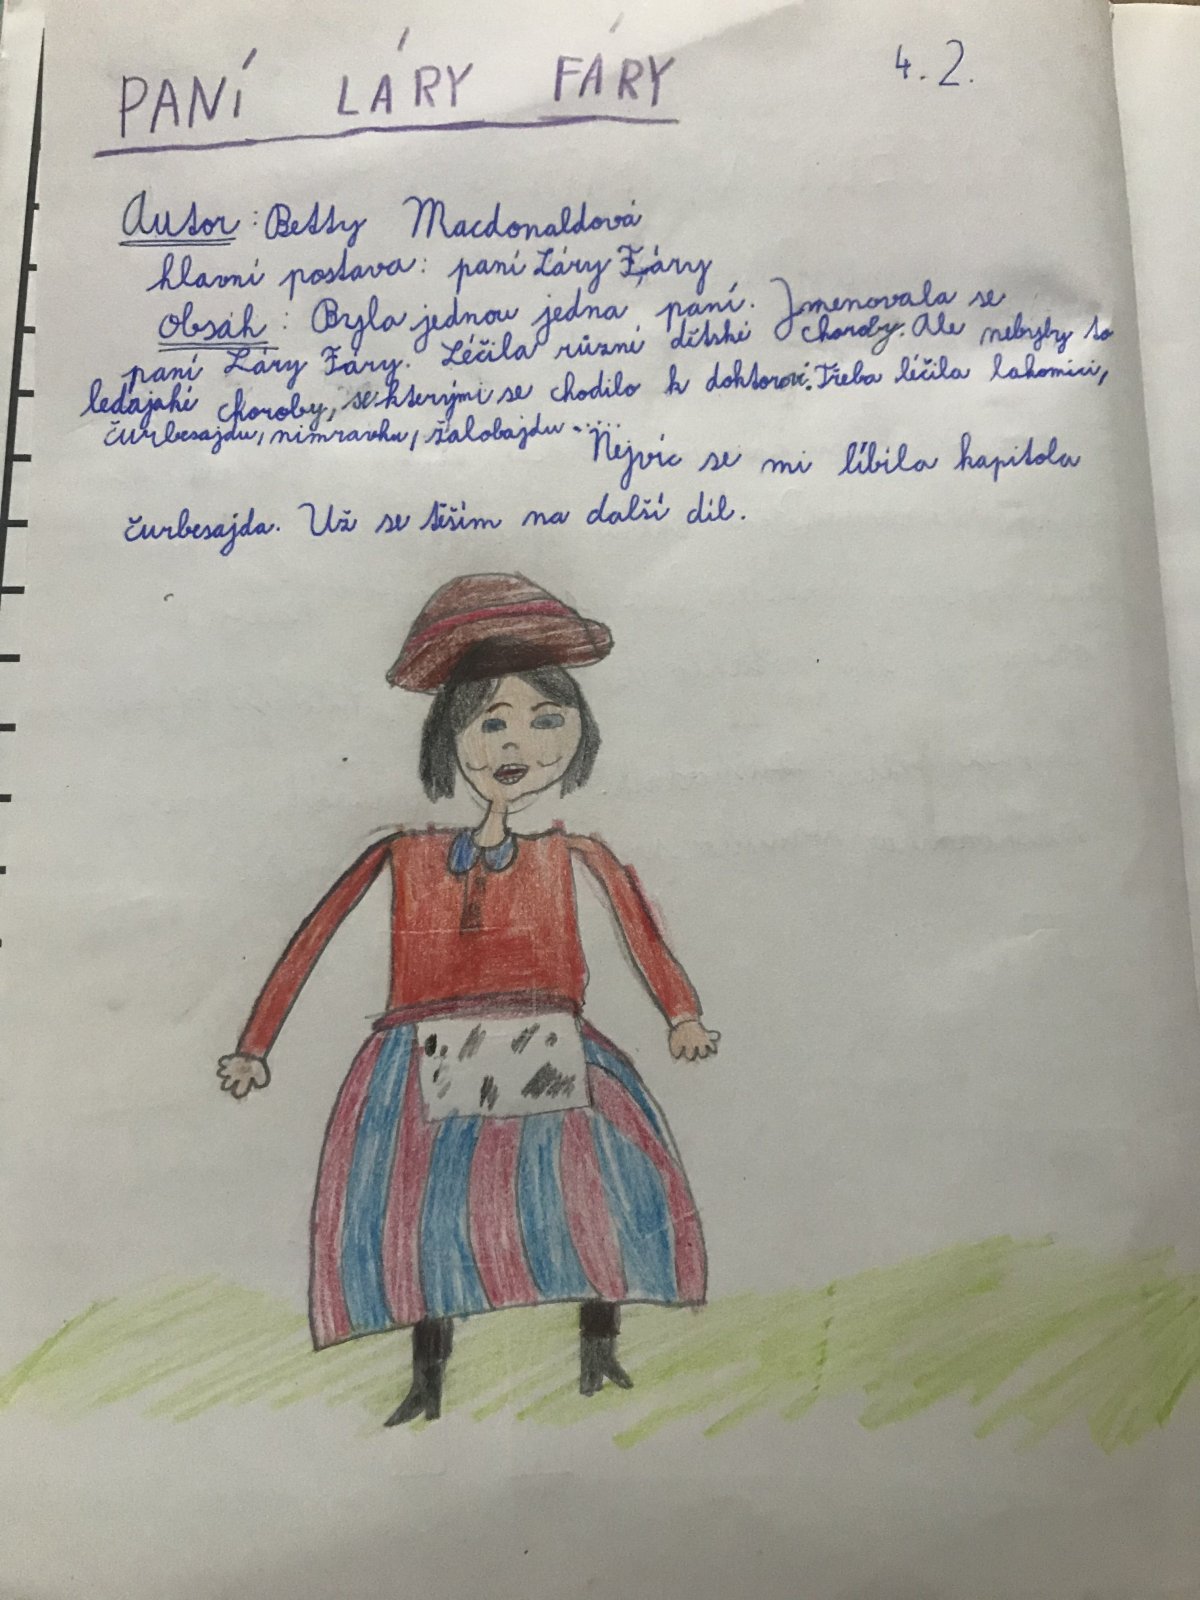 PANÍ LÁRY FÁRY 4.2.
Autor: Betty Macdonaldová
hlavní postava: paní Láry Fáry
Obsah: Byla jednou jedna paní. Jmenovala se
paní Láry Fáry. Léčila různí dětské choroby. Ale nebyly to
ledajaké choroby, se kterými se chodilo k doktorovi. Třeba léčila lakomici,
čurbesajdu, nimravku, žalobajdu.....
Nejvíc se mi líbila kapitola
čurbesajda. Už se těším na další díl.